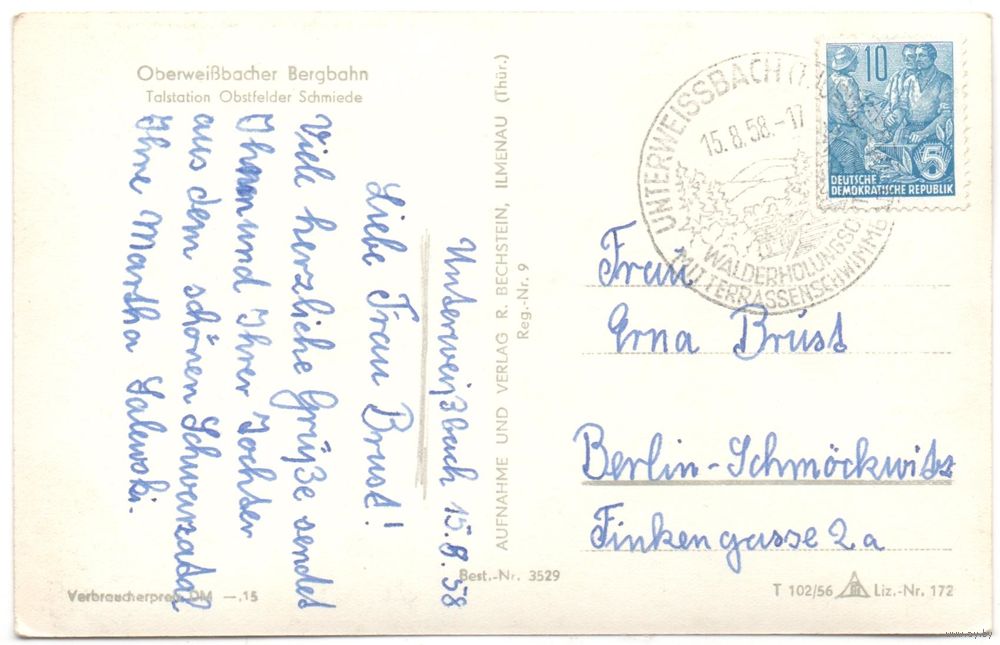 Oberweißbacher Bergbahn
Talstation Obstfelder Schmiede
Unterweißbach 15.8.58
Liebe Frau Brust!
Viele herzliche Grüße sendet
Ihnen und Ihrer Tochter
aus dem schönen Schwarzatal
Ihre Martha Salewski.
Verbraucherpreis DM —.15
AUFNAHME UND VERLAG R. BECHSTEIN, ILMENAU (Thür.)
Reg.-Nr. 9
Best.-Nr. 3529
UNTERWEISSBACH
15.8.58.-17
WALDERHOLUNGSO
MIT TERRASSENSCHWIMMB
10
5
DEUTSCHE
DEMOKRATISCHE REPUBLIK
Frau
Erna Brust
Berlin-Schmöckwitz
Finkengasse 2a
T 102/56 Liz.-Nr. 172
www.ay.by